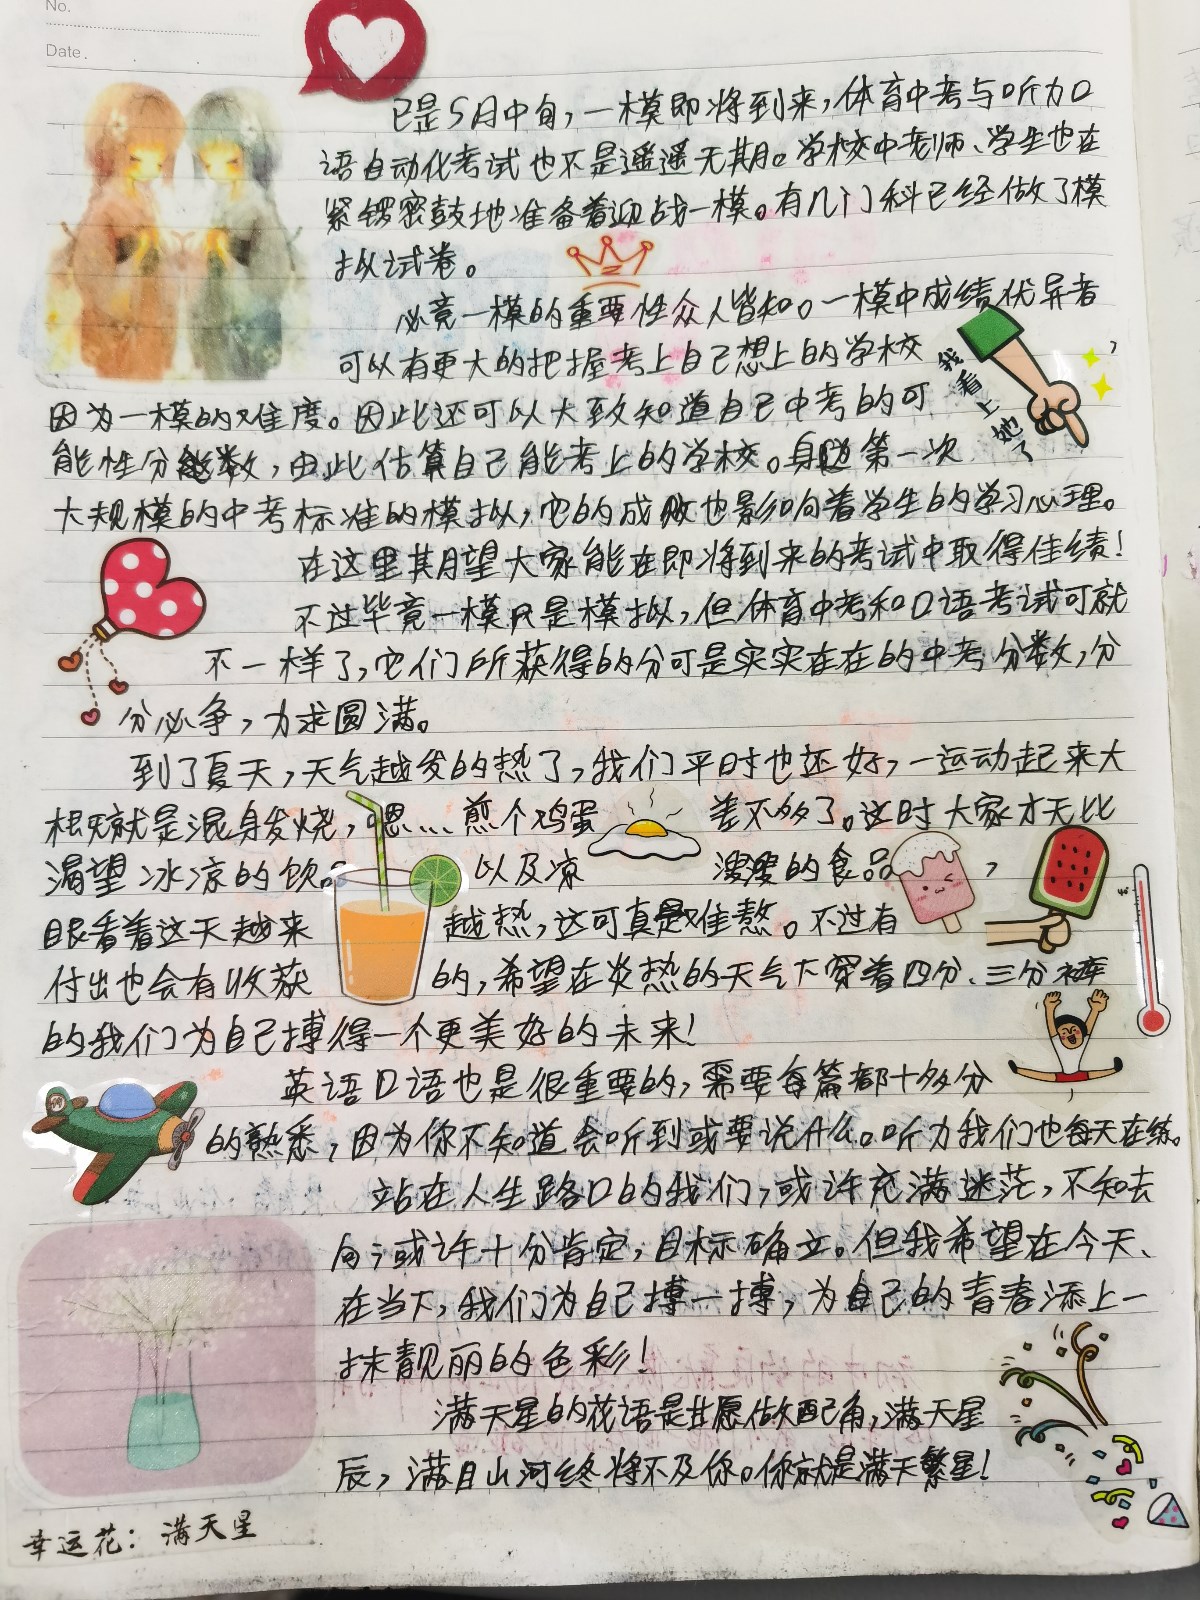 No.
Date.
已是5月中旬，一模即将到来，体育中考与听力口
语自动化考试也不是遥遥无期。学校中老师、学生也在
紧锣密鼓地准备着迎战一模。有几门科已经做了模
拟试卷。
必竟一模的重要性众人皆知。一模中成绩优异者
可以有更大的把握考上自己想上的学校，
我看上她了
因为一模的难度。因此还可以大致知道自己中考的可
能性分数，由此估算自己能考上的学校。身边第一次
大规模的中考标准的模拟，它的成败也影响着学生的学习心理。
在这里期望大家能在即将到来的考试中取得佳绩！
不过毕竟一模只是模拟，但体育中考和口语考试可就
不一样了，它们所获得的分可是实实在在的中考分数，分
分必争，力求圆满。
到了夏天，天气越发的热了，我们平时也还好，一运动起来大
概就是混身发烧，嗯…煎个鸡蛋差不多了。这时大家才无比
渴望冰凉的饮品以及凉溲溲的食品，
眼看着这天越来越热，这可真是难熬。不过有
付出也会有收获的，希望在炎热的天气下穿着四分、三分裤
的我们为自己搏得一个更美好的未来！
英语口语也是很重要的，需要每篇都十多分
的熟悉，因为你不知道会听到或要说什么。听力我们也每天在练。
站在人生路口的我们，或许充满迷茫，不知去
向；或许十分肯定，目标确立。但我希望在今天、
在当下，我们为自己搏一搏，为自己的青春添上一
抹靓丽的色彩！
满天星的花语是甘愿做配角，满天星
辰，满目山河终将不及你。你就是满天繁星！
幸运花：满天星